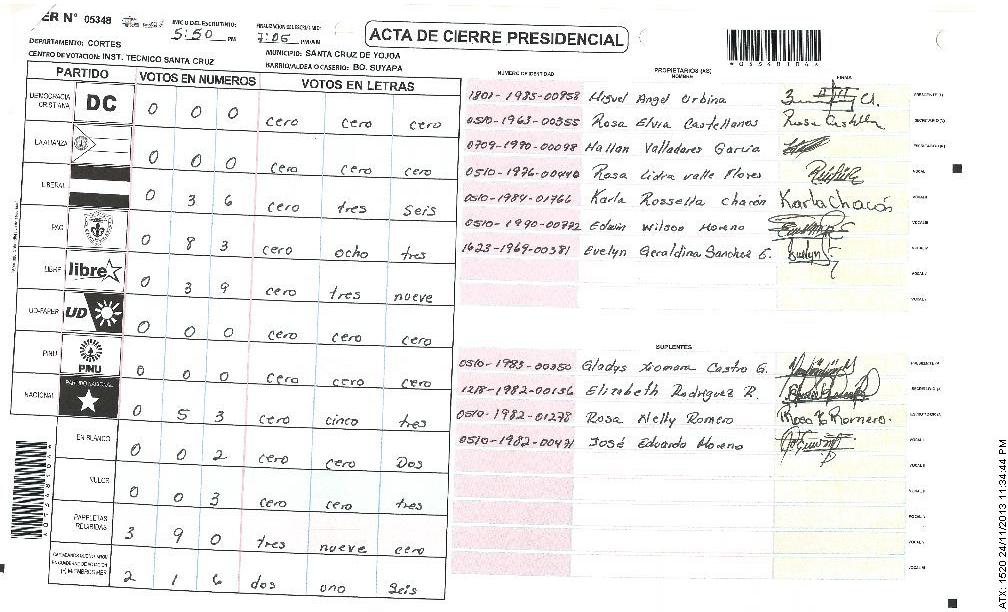 ER N° 05348
INICIO DEL ESCRUTINIO: 5:50 PM
FINALIZACION DEL ESCRUTINIO: 7:05 PM/AM
ACTA DE CIERRE PRESIDENCIAL
DEPARTAMENTO: CORTES
MUNICIPIO: SANTA CRUZ DE YOJOA
CENTRO DE VOTACION: INST. TECNICO SANTA CRUZ
BARRIO/ALDEA O CASERIO: BO. SUYAPA
PARTIDO VOTOS EN NUMEROS VOTOS EN LETRAS
DEMOCRACIA CRISTIANA DC 0 0 0 cero cero cero
LA ALIANZA 0 0 0 cero cero cero
LIBERAL 0 3 6 cero tres seis
PAC 0 8 3 cero ocho tres
LIBRE libre 0 3 9 cero tres nueve
UD-FAPER UD 0 0 0 cero cero cero
PINU PINU 0 0 0 cero cero cero
NACIONAL PARTIDO NACIONAL 0 5 3 cero cinco tres
EN BLANCO 0 0 2 cero cero Dos
NULOS 0 0 3 cero cero tres
PAPELETAS RECIBIDAS 3 9 0 tres nueve cero
2 1 6 dos uno seis
NUMERO DE IDENTIDAD PROPIETARIOS (AS) NOMBRE FIRMA
1801-1985-00958 Miguel Angel Urbina PRESIDENTE (A)
0510-1963-00355 Rosa Elvia Castellanos Rosa Castella SECRETARIO (A)
0709-1990-00098 Hallan Valladares Garcia ESCRUTADOR (A)
0510-1976-00440 Rosa Lidia valle Flores VOCAL I
0510-1984-01766 Karla Rossella chacón Karla Chacón VOCAL II
0510-1990-00772 Edwin Wilson Moreno VOCAL III
1623-1969-00381 Evelyn Geraldina Sanchez G. Evelyn S. VOCAL IV
VOCAL V
VOCAL VI
SUPLENTES
0510-1983-00350 Gladys Xiomara Castro G. PRESIDENTE (A)
1218-1982-00136 Elizabeth Rodriguez R. SECRETARIO (A)
0510-1982-01298 Rosa Nelly Romero Rosa N Romero. ESCRUTADOR (A)
0510-1982-00491 José Eduardo Moreno VOCAL I
VOCAL II
VOCAL III
VOCAL IV
VOCAL V
VOCAL VI
ATX: 1520 24/11/2013 11:34:44 PM